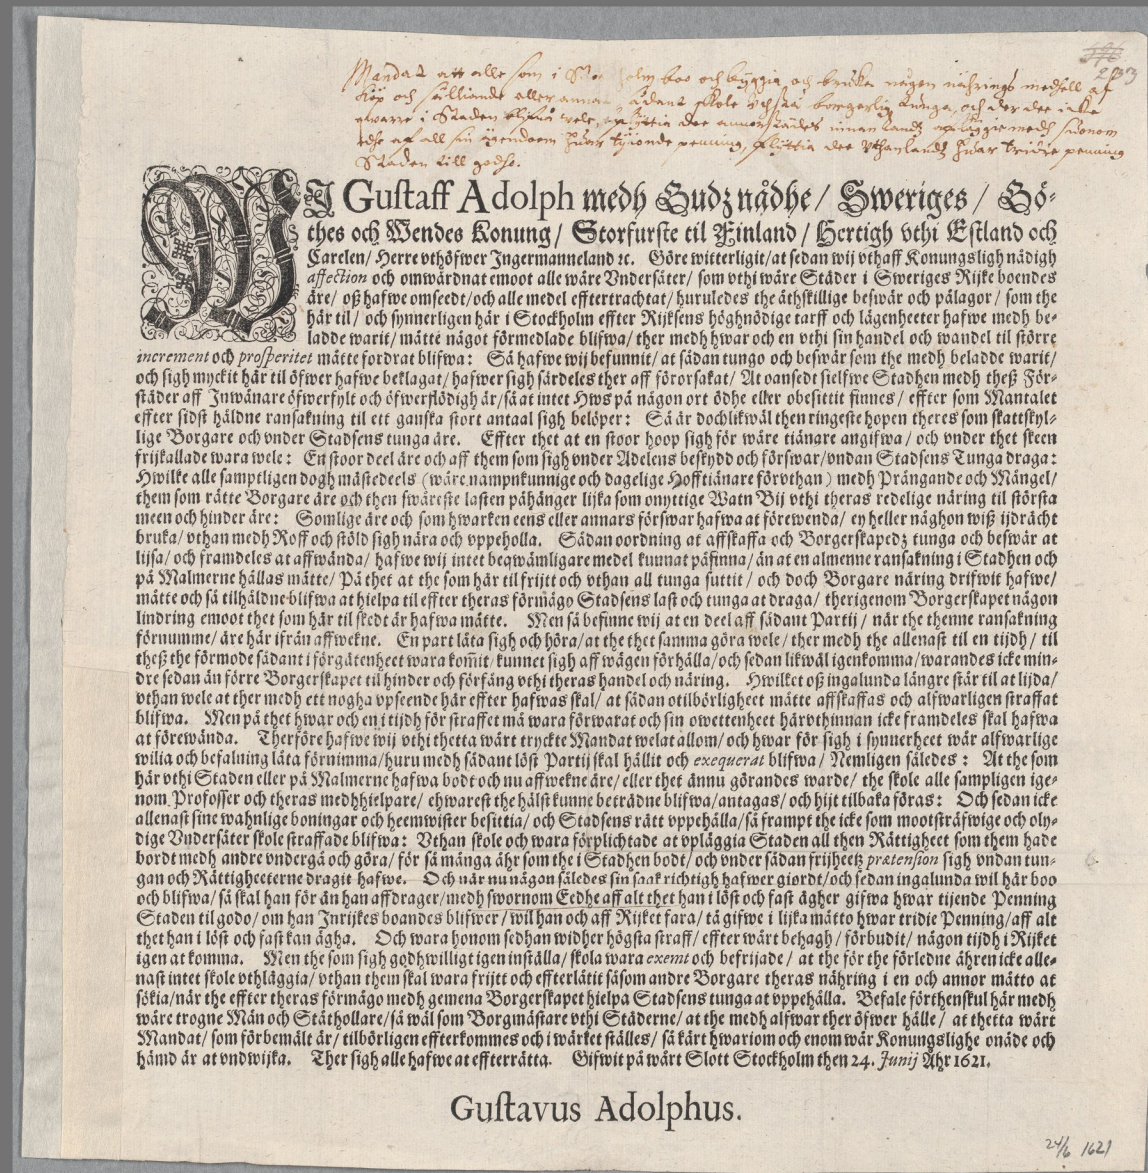 293
Mandat att alle som i Stockholm boo och byggia och bruka någon nährings medell af
Köp och sälliande aller annan sådant skole uthstå borgerlig tunga, och der dee icke
qwarre i Staden bliffua wele,
edhe af all sin egendoem huar tijonde penning, flyttia dee uthanlandz huar tridie penning
Staden till godho.
WJ Gustaff Adolph medh Gudz nådhe / Sweriges / Gö-
thes och Wendes Konung / Storfurste til Finland / Hertigh vthi Estland och
Carelen / Herre vthöfwer Ingermanneland ꝛc. Göre witterligit / at sedan wij vthaff Konungsligh nådigh
affection och omwårdnat emoot alle wåre Vndersåter / som vthi wåre Städer i Sweriges Rijke boendes
äre / oß hafwe omseedt / och alle medel efftertrachtat / huruledes the åthskillige beswär och pålagor / som the
här til / och synnerligen här i Stockholm effter Rijksens höghnödige tarff och lägenheeter hafwe medh be-
ladde warit / måtte något förmedlade blifwa / ther medh hwar och en vthi sin handel och wandel til större
increment och prosperitet måtte fordrat blifwa: Så hafwe wij befunnit / at sådan tungo och beswär som the medh beladde warit /
och sigh myckit här til öfwer hafwe beklagat / hafwer sigh särdeles ther aff förorsakat / At oansedt sielfwe Stadhen medh theß För-
städer aff Inwånare öfwerfylt och öfwerflödigh är / så at intet Hws på någon ort ödhe eller obesittit finnes / effter som Mantalet
effter sidst håldne ransakning til ett ganska stort antaal sigh belöper: Så är dochlikwäl then ringeste hopen theres som skattskyl-
lige Borgare och vnder Stadsens tunga äre. Effter thet at en stoor hoop sigh för wåre tiänare angifwa / och vnder thet skeen
frijkallade wara wele: En stoor deel äre och aff them som sigh vnder Adelens beskydd och förswar / vndan Stadsens Tunga draga:
Hwilke alle samptligen dogh mästedeels (wåre nampnkunnige och dagelige Hofftiänare förvthan) medh Prångande och Mångel /
them som rätte Borgare äre och then swåreste lasten påhänger lijka som onyttige Watn Bij vthi theras redelige näring til största
meen och hinder äre: Somlige äre och som hwarken eens eller annars förswar hafwa at förewenda / ey heller någhon wiß ijdrächt
bruka / vthan medh Roff och stöld sigh nära och vppeholla. Sådan oordning at affskaffa och Borgerskapedz tunga och beswär at
lijsa / och framdeles at affwända / hafwe wij intet beqwämligare medel kunnat påfinna / än at en almenne ransakning i Stadhen och
på Malmerne hållas måtte / På thet at the som här til frijtt och vthan all tunga suttit / och doch Borgare näring drifwit hafwe /
måtte och så tilhåldne blifwa at hielpa til effter theras förmågo Stadsens last och tunga at draga / therigenom Borgerskapet någon
lindring emoot thet som här til skedt är hafwa måtte. Men så befinne wij at en deel aff sådant Partij / när the thenne ransakning
förnumme / äre här ifrån affwekne. En part låta sigh och höra / at the thet samma göra wele / ther medh the allenast til en tijdh / til
theß the förmode sådant i förgätenheet wara kom̃it / kunnet sigh aff wägen förhålla / och sedan likwäl igenkomma / warandes icke min-
dre sedan än förre Borgerskapet til hinder och förfång vthi theras handel och näring. Hwilket oß ingalunda längre står til at lijda /
vthan wele at ther medh ett nogha vpseende här effter hafwas skal / at sådan otilbörligheet måtte affskaffas och alfwarligen straffat
blifwa. Men på thet hwar och en i tijdh för straffet må wara förwarat och sin owettenheet härvthinnan icke framdeles skal hafwa
at förewända. Therföre hafwe wij vthi thetta wårt tryckte Mandat welat allom / och hwar för sigh i synnerheet wår alfwarlige
wilia och befalning låta förnimma / huru medh sådant löst Partij skal hållit och exequerat blifwa / Nemligen således: At the som
här vthi Staden eller på Malmerne hafwa bodt och nu affwekne äre / eller thet ännu görandes warde / the skole alle sampligen ige-
nom Profosser och theras medhhielpare / ehwarest the hälst kunne beträdne blifwa / antagas / och hijt tilbaka föras: Och sedan icke
allenast sine wahnlige boningar och heemwister besittia / och Stadsens rätt vppehålla / så frampt the icke som mootsträfwige och oly-
dige Vndersåter skole straffade blifwa: Vthan skole och wara förplichtade at vpläggia Staden all then Rättigheet som them hade
bordt medh andre vndergå och göra / för så många åhr som the i Stadhen bodt / och vnder sådan frijheetz prætension sigh vndan tun-
gan och Rättigheeterne dragit hafwe. Och når nu någon således sin saak richtigh hafwer giordt / och sedan ingalunda wil här boo
och blifwa / så skal han för än han affdrager / medh swornom Eedhe aff alt thet han i löst och fast ägher gifwa hwar tijende Penning
Staden til godo / om han Inrijkes boandes blifwer / wil han och aff Rijket fara / tå gifwe i lijka måtto hwar tridie Penning / aff alt
thet han i löst och fast kan ägha. Och wara honom sedhan widher högsta straff / effter wårt behagh / förbudit / någon tijdh i Rijket
igen at komma. Men the som sigh godhwilligt igen inställa / skola wara exemt och befrijade / at the för the förledne åhren icke alle-
nast intet skole vthläggia / vthan them skal wara frijtt och efferlåtit såsom andre Borgare theras nähring i en och annor måtto at
sökia / när the effter theras förmågo medh gemena Borgerskapet hielpa Stadsens tunga at vppehålla. Befale förthenskul här medh
wåre trogne Män och Ståthollare / så wäl som Borgmästare vthi Städerne / at the medh alfwar ther öfwer hålle / at thetta wårt
Mandat / som förbemält är / tilbörligen effterkommes och i wärket ställes / så kärt hwariom och enom wår Konungslighe onåde och
hämd är at vndwijka. Ther sigh alle hafwe at effterrätta. Gifwit på wårt Slott Stockholm then 24. Junij Åhr 1621.
Gustavus Adolphus.
24/6 1621